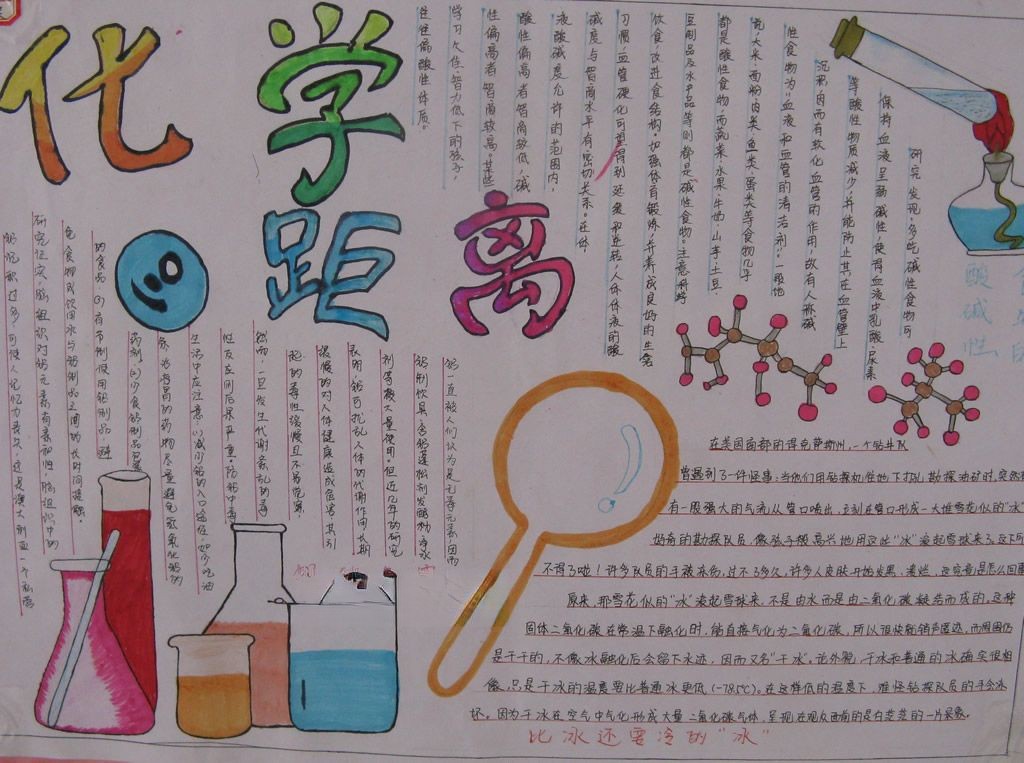 化学
距离
酸碱性
食品的
研究发现:多吃碱性食物可
保持血液呈弱碱性,使得血液中乳酸、尿素
等酸性物质减少,并能防止其在血管壁上
沉积因而有软化血管的作用,故有人称碱
性食物为"血液和血管的清洁剂"。一般地
说,大米、面粉、肉类、鱼类、蛋类等食物几乎
都是酸性食物,而蔬菜、水果、牛奶、山芋、土豆、
豆制品及水产品等则都是碱性食物。注意科学
饮食,改进食结构,加强体育锻炼,并养成良好的生活
习惯,血管硬化可望得到延缓和逆转。人体体液的酸
碱度与智商水平有密切关系。在体
液酸碱度允许的范围内,
酸性偏高者智商较低,碱
性偏高者智商较高。某些
学习欠佳、智力低下的孩子,
往往偏酸性体质。
铝一直被人们认为是无毒元素,因而
铝制饮具、含铝蓬松剂发酵粉、净水
剂等被大量使用。但近几年的研究
表明,铝可扰乱人体的代谢作用,长期
缓慢的对人体健康造成危害,其引
起的毒性缓慢且不易觉察,
然而,一旦发生代谢紊乱的毒
性反应则后果严重。防铝中毒,
生活中应注意:(1)减少铝的入口途径,如少吃油
条,治胃的药物尽量避免氢氧化铝的
药剂.(2)少食铝制品包装
的食品.(3)有节制使用铝制品,避
免食物或饮用水与铝制品之间的长时间接触。
研究证实,脑组织对铝元素有亲和性,脑组织中的
铝沉积过多,可使人记忆力丧失,这是澳大利亚一个私营
在美国南部的得克萨斯州,一个钻井队
曾遇到了一件怪事:当他们用钻探机往地下打孔勘探油矿时,突然
有一股强大的气流从管口喷出,立刻在管口形成一大堆雪花似的"冰"
好奇的勘探队员,像孩子般高兴地用这些"冰"滚起雪球来了,这下可
不得了啦!许多队员的手被冻伤,过不了多久,许多人皮肤开始发黑、溃烂,这究竟是怎么回事
原来,那雪花似的"冰"滚起雪球来,不是由水而是由二氧化碳凝结而成的,这种
固体二氧化碳在常温下融化时,能直接气化为二氧化碳,所以很快能销声匿迹,而周围仍
是干干的,不像冰融化后会留下水迹,因而又名"干冰"。论外貌,干冰和普通的冰确实很相
像,只是干冰的温度要比普通冰更低(-78.5℃)。在这样低的温度下,难怪钻探队员的手会冻
坏。因为干冰在空气中气化形成大量二氧化碳气体,呈现在观众面前的是白茫茫的一片景象。
比冰还要冷的"冰"